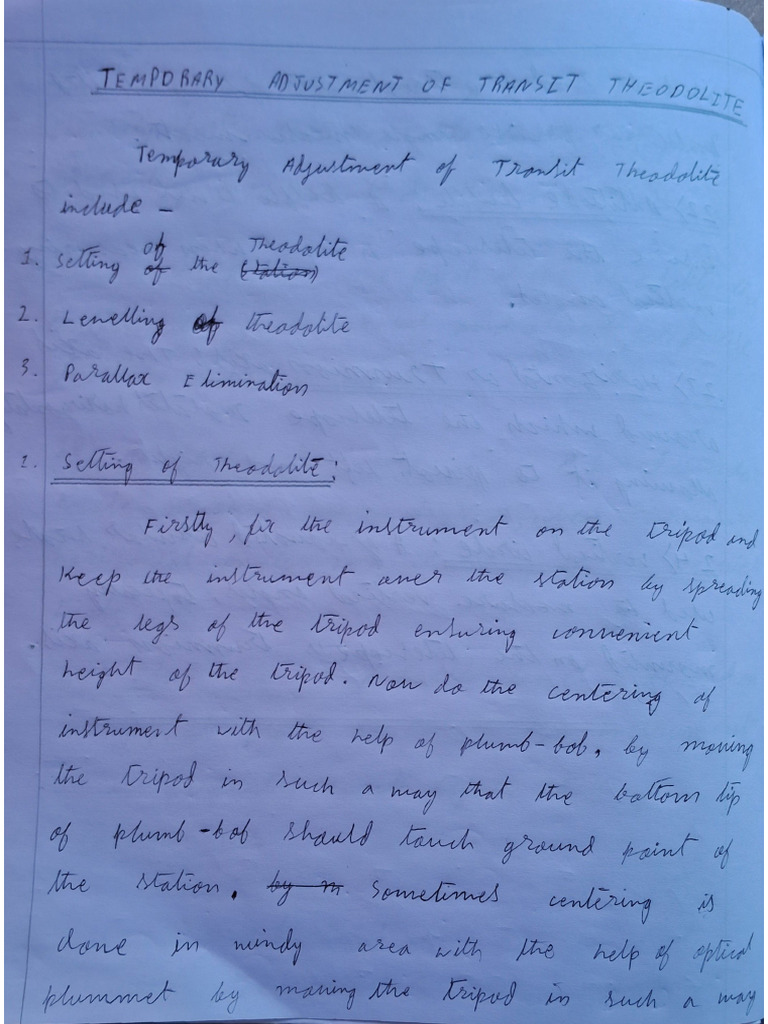 TEMPORARY ADJUSTMENT OF TRANSIT THEODOLITE
Temporary Adjustment of Transit Theodolite
include -
1. Setting of the Theodolite
2. Levelling theodolite
3. Parallax Elimination
1. Setting of Theodolite:
Firstly, fix the instrument on the tripod and
Keep the instrument over the station by spreading
the legs of the tripod ensuring convenient
height of the tripod. Now do the centering of
instrument with the help of plumb-bob, by moving
the tripod in such a way that the bottom tip
of plumb-bob should touch ground point of
the station. Sometimes centering is
done in windy area with the help of optical
plummet by moving the tripod in such a way